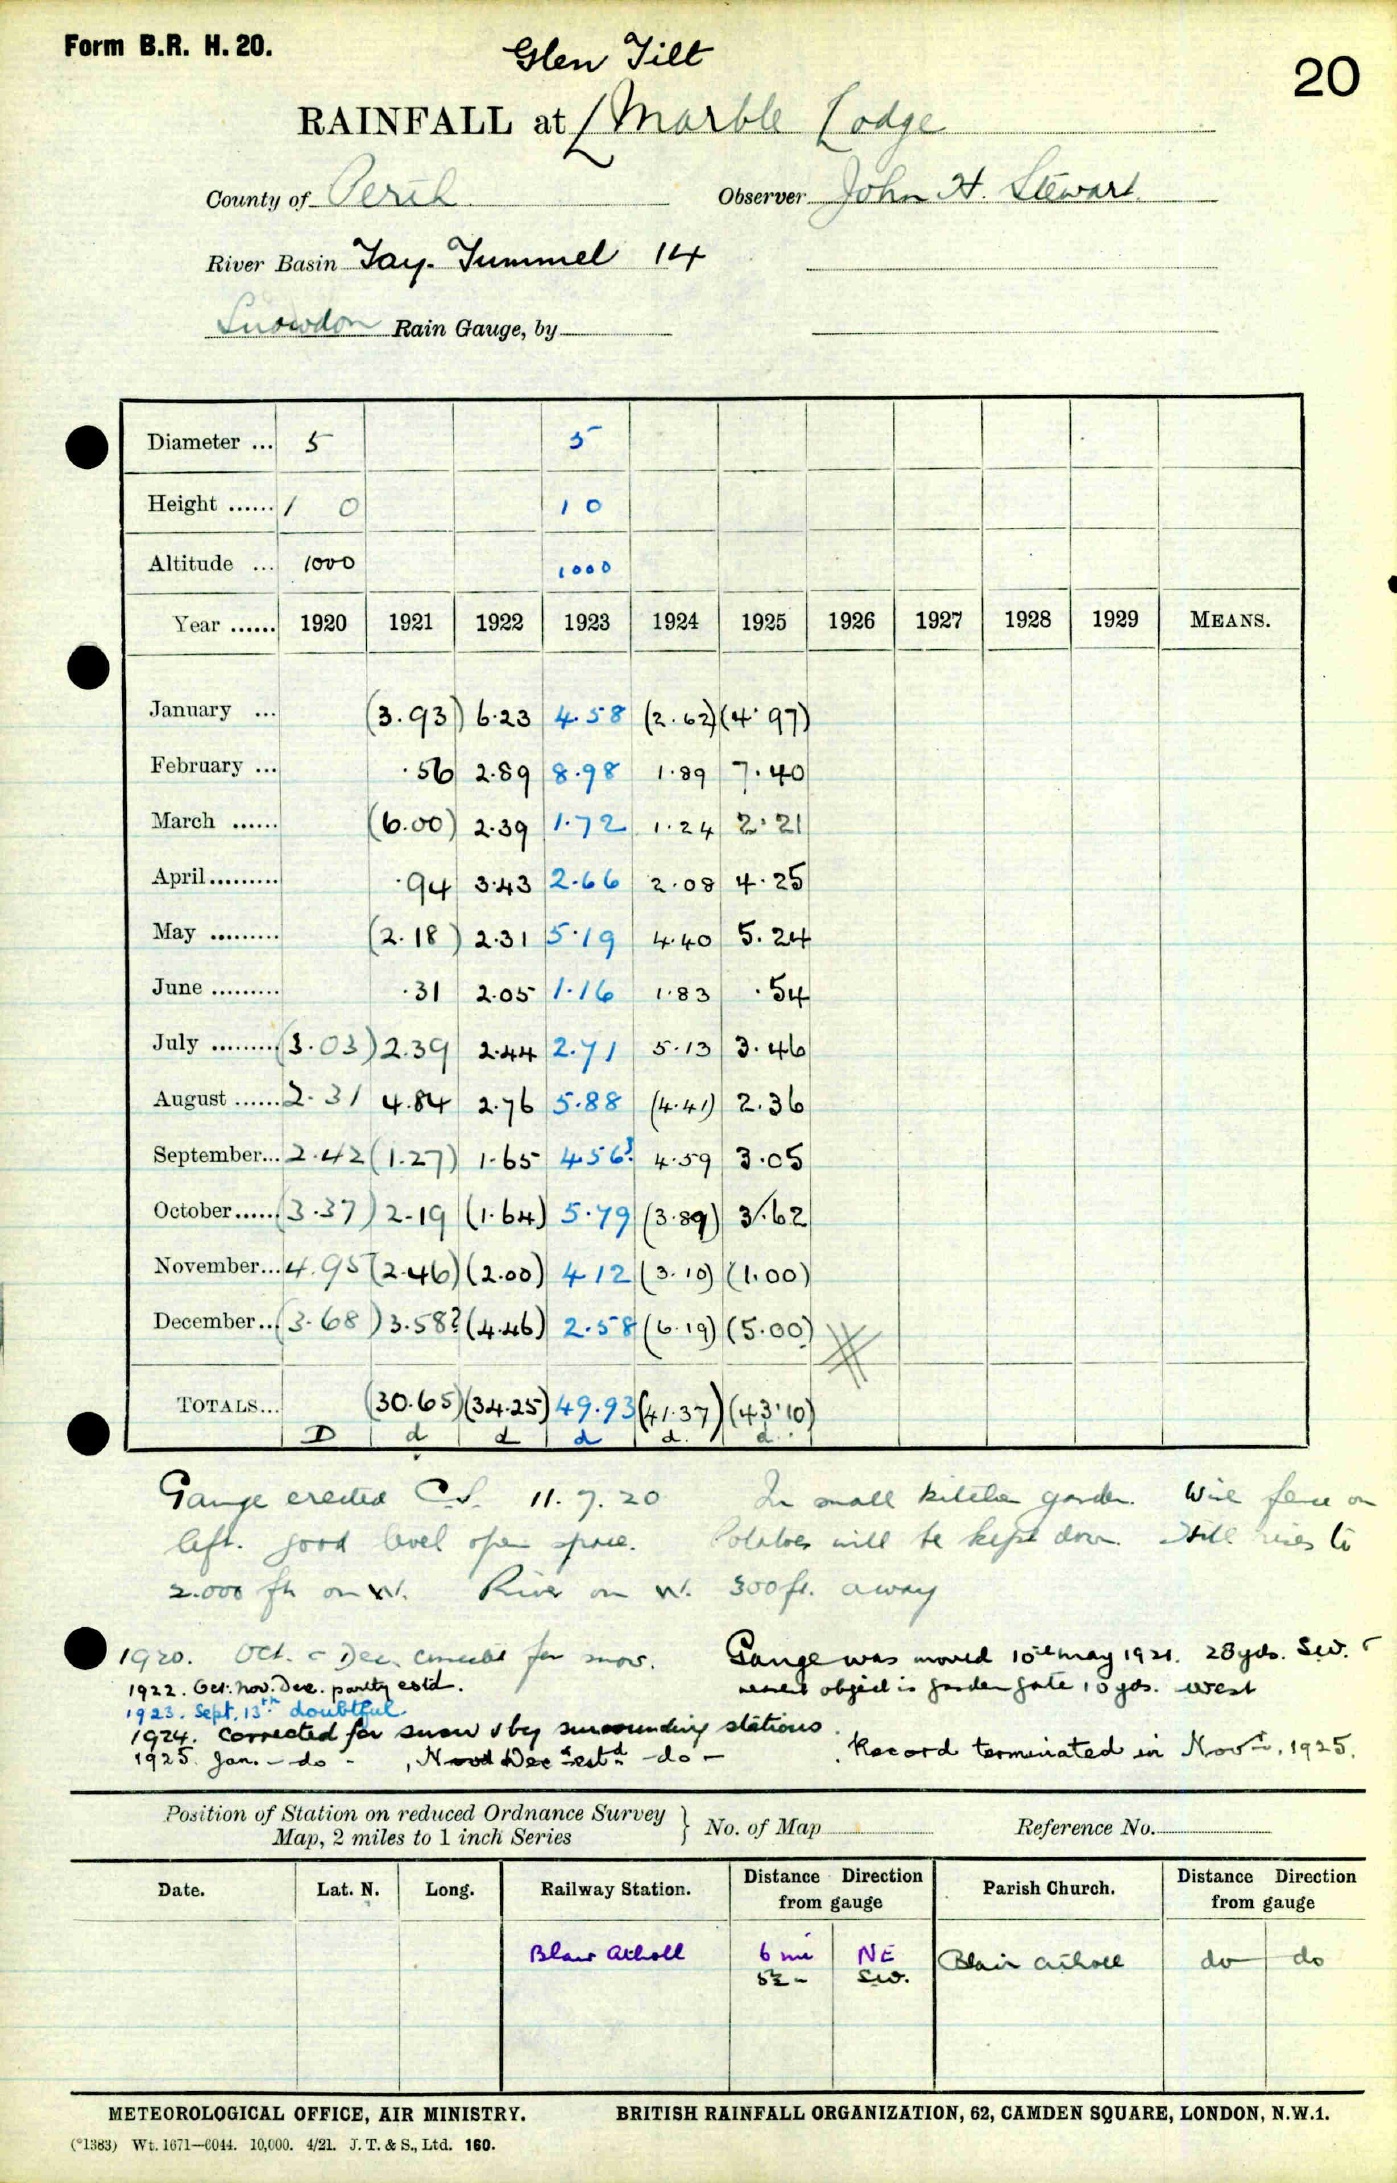 Form B.R. H. 20.
Glen Tilt
20
RAINFALL at Marble Lodge
County of Perth Observer John H. Stewart.
River Basin Tay. Tummel 14
Snowdon Rain Gauge, by
Diameter ... 5 5
Height ...... 1 0 1 0
Altitude ... 1000 1000
Year ...... 1920 1921 1922 1923 1924 1925 1926 1927 1928 1929 MEANS.
January ... (3.93) 6.23 4.58 (2.62) (4.97)
February ... .56 2.89 8.98 1.89 7.40
March ...... (6.00) 2.39 1.72 1.24 2.21
April......... .94 3.43 2.66 2.08 4.25
May ......... (2.18) 2.31 5.19 4.40 5.24
June ......... .31 2.05 1.16 1.83 .54
July ......... (3.03) 2.39 2.44 2.71 5.13 3.46
August ...... 2.31 4.84 2.76 5.88 (4.41) 2.36
September... 2.42 (1.27) 1.65 4.56? 4.59 3.05
October...... (3.37) 2.19 (1.64) 5.79 (3.89) 3.62
November... 4.95 (2.46) (2.00) 4.12 (3.10) (1.00)
December... (3.68) 3.58? (4.46) 2.58 (6.19) (5.00)
TOTALS... (30.65) (34.25) 49.93 (41.37) (43.10)
D d d d d. d.
Gauge erected C.S. 11.7.20 In small kitchen garden. Wire fence on
left. good level open space. Potatoes will be kept down. Hill rises to
2.000 ft on W. River on W. 300 ft. away
1920. Oct. Dec. for snow. Gauge was moved 10th May 1921. 28 yds. SW.
1922. Oct. Nov. Dec. partly estd. nearest object is garden gate 10 yds. West
1923. Sept. 13th doubtful.
1924. Corrected for snow & by surrounding stations.
1925. Jan. - do - , Nov d Dec estd - do - . Record terminated in Novr. 1925.
Position of Station on reduced Ordnance Survey
Map, 2 miles to 1 inch Series } No. of Map Reference No.
Date. Lat. N. Long. Railway Station. Distance Direction from gauge Parish Church. Distance Direction from gauge
Blair Atholl 6 mi NE Blair Atholl do do
5½ - SW.
METEOROLOGICAL OFFICE, AIR MINISTRY. BRITISH RAINFALL ORGANIZATION, 62, CAMDEN SQUARE, LONDON, N.W.1.
(°1383) Wt. 1671—6044. 10,000. 4/21. J. T. & S., Ltd. 160.